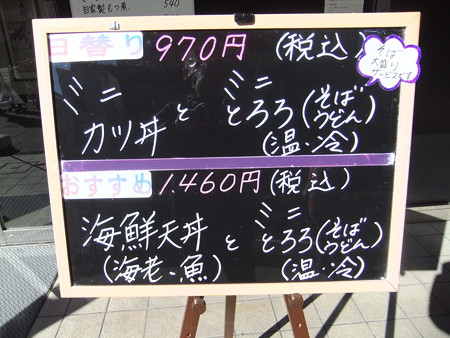 自家製もつ煮 540
日替り 970円 (税込)
そば
大盛り
サービスです
ミニ ミニ
カツ丼 と とろろ(そば
うどん)
(温・冷)
おすすめ 1.460円 (税込)
ミニ
海鮮天丼 と とろろ(そば
うどん)
(海老・魚) (温・冷)